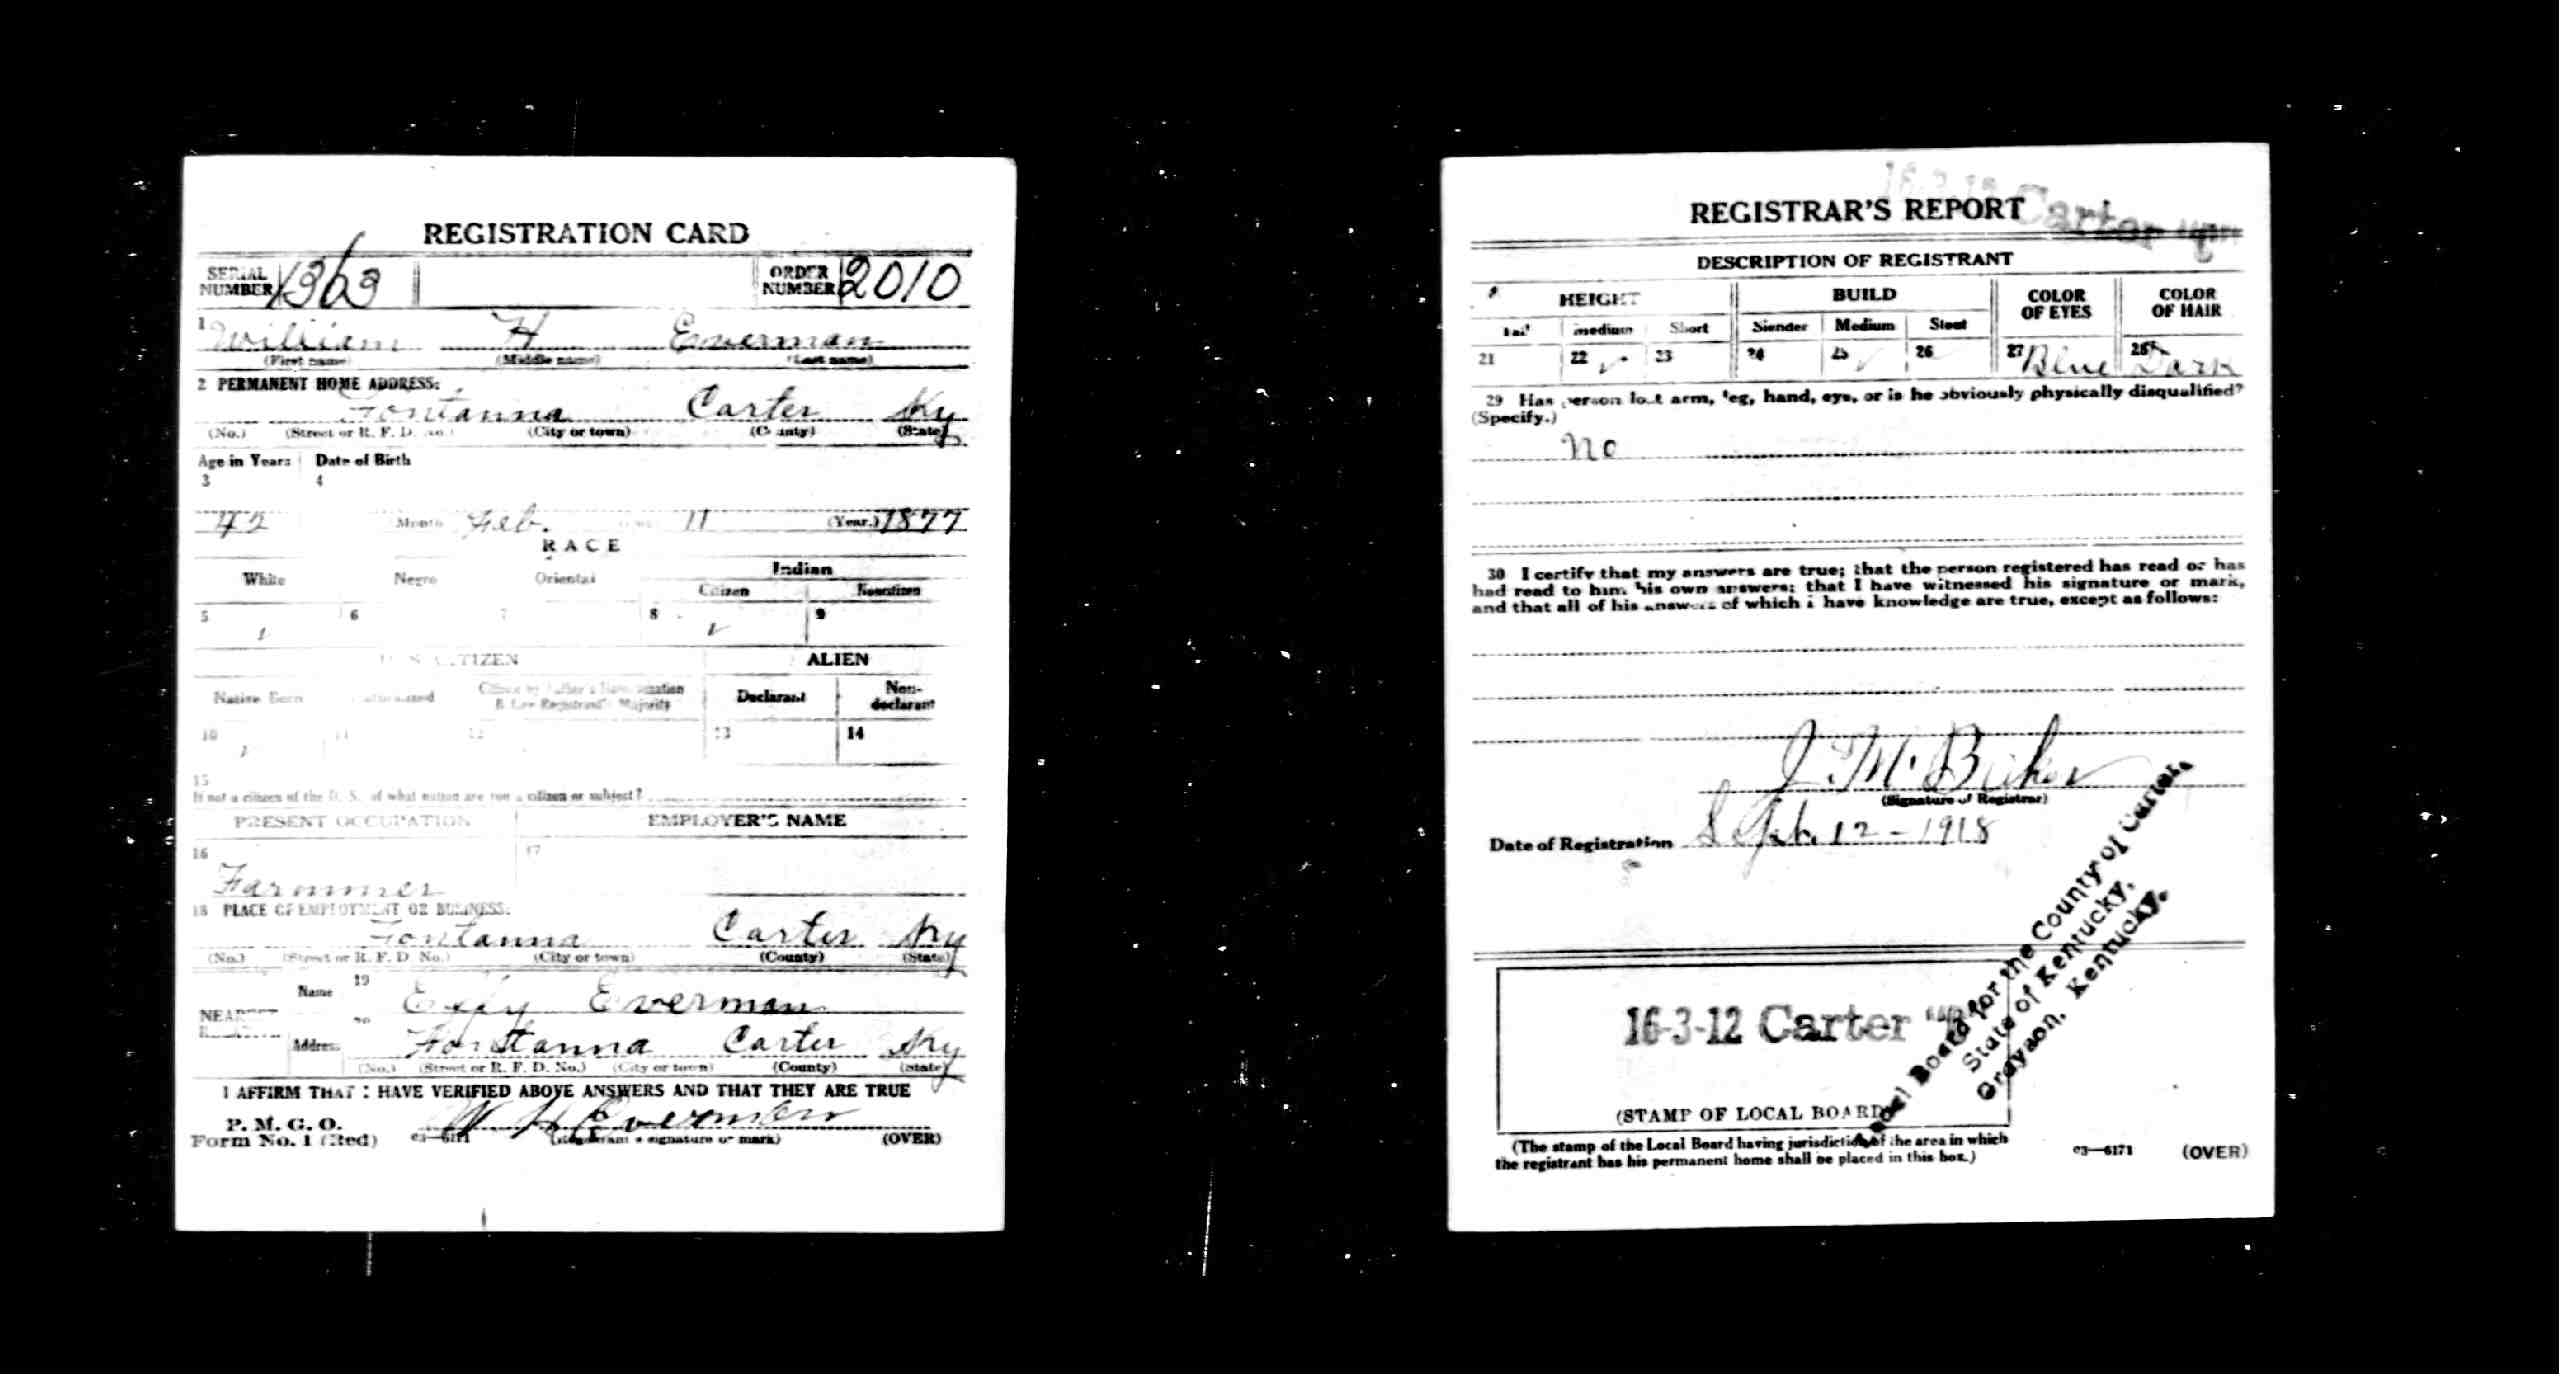 REGISTRATION CARD
SERIAL NUMBER 1363 ORDER NUMBER 2010
1 William H Everman
(First name) (Middle name) (Last name)
2 PERMANENT HOME ADDRESS:
Fontanna Carter Ky
(No.) (Street or R. F. D. No.) (City or town) (County) (State)
Age in Years Date of Birth
3 4
42 Month Feb. 11 (Year.) 1877
RACE
White Negro Oriental Indian
Citizen Noncitizen
5 6 7 8 9
U. S. CITIZEN ALIEN
Native Born Naturalized Citizen by Father's Naturalization Before Registrant's Majority Declarant Non-declarant
10 11 12 13 14
15
If not a citizen of the U. S. of what nation are you a citizen or subject?
PRESENT OCCUPATION EMPLOYER'S NAME
16 17
Farmmer
18 PLACE OF EMPLOYMENT OR BUSINESS:
Fontanna Carter Ky
(No.) (Street or R. F. D. No.) (City or town) (County) (State)
NEAREST Name 19 Everman
Address 20 Fontanna Carter Ky
(No.) (Street or R. F. D. No.) (City or town) (County) (State)
I AFFIRM THAT I HAVE VERIFIED ABOVE ANSWERS AND THAT THEY ARE TRUE
P. M. G. O.
Form No. 1 (Red) 03—6171 W H Everman (OVER)
(Registrant's signature or mark)
16-3-12 Carter
REGISTRAR'S REPORT
DESCRIPTION OF REGISTRANT
HEIGHT BUILD COLOR OF EYES COLOR OF HAIR
Tall medium Short Slender Medium Stout
21 22 23 24 25 26 27 Blue 28 Dark
29 Has person lost arm, leg, hand, eye, or is he obviously physically disqualified?
(Specify.)
No
30 I certify that my answers are true; that the person registered has read or has
had read to him his own answers; that I have witnessed his signature or mark,
and that all of his answers of which I have knowledge are true, except as follows:
J. M.
(Signature of Registrar)
Date of Registration Sept. 12-1918
Local Board for the County of Carter,
State of Kentucky,
Grayson, Kentucky.
16-3-12 Carter
(STAMP OF LOCAL BOARD)
(The stamp of the Local Board having jurisdiction of the area in which
the registrant has his permanent home shall be placed in this box.)
03—6171 (OVER)